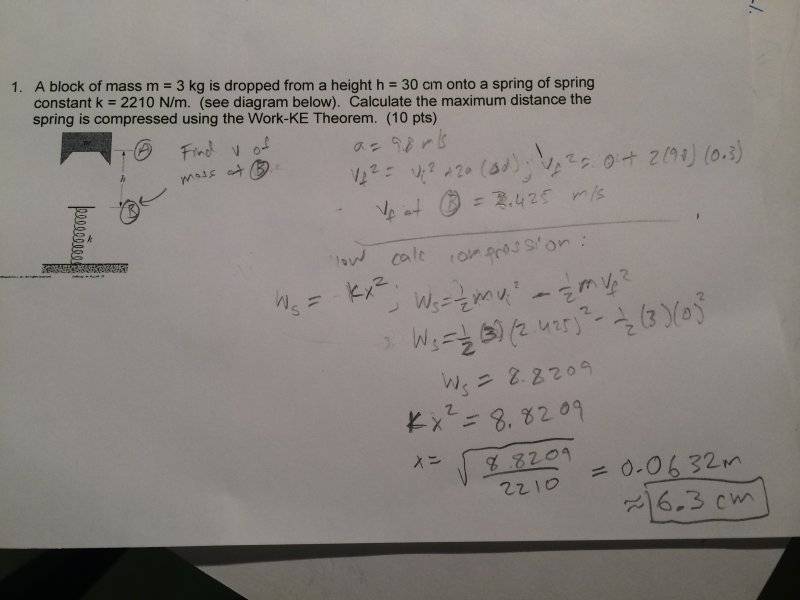 1. A block of mass m = 3 kg is dropped from a height h = 30 cm onto a spring of spring
constant k = 2210 N/m. (see diagram below). Calculate the maximum distance the
spring is compressed using the Work-KE Theorem. (10 pts)
m
A
Find v of
mass at B
h
B
k
a = 9.8 m/s
Vf² = Vi² + 2a (Δd); Vf² = 0 + 2(9.8)(0.3)
Vf at B = 2.425 m/s
now calc compression:
Ws = Kx²; Ws = 1/2 mvi² - 1/2 mvf²
Ws = 1/2 (3)(2.425)² - 1/2 (3)(0)²
Ws = 8.8209
Kx² = 8.8209
x = √ 8.8209 / 2210 = 0.0632m
≈ 6.3 cm